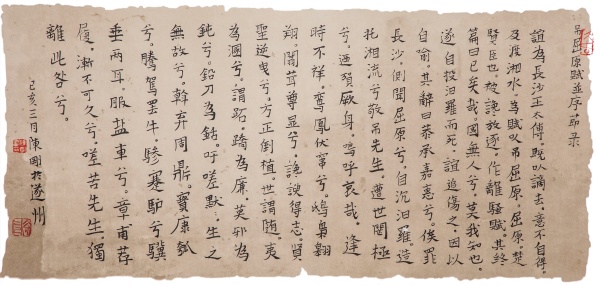 吊屈原賦並序節录
誼為長沙王太傅，既以謫去，意不自得。
及渡湘水，為賦以吊屈原。屈原，楚
賢臣也。被讒放逐，作離騷賦，其終
篇曰已矣哉。國無人兮，莫我知也。
遂自投汨羅而死。誼追傷之，因以
自喻。其辭曰恭承嘉惠兮，俟罪
長沙，側聞屈原兮，自沉汨羅。造
托湘流兮，敬吊先生。遭世罔極
兮，迺殞厥身。嗚呼哀哉，逢
時不祥。鸞鳳伏竄兮，鴟梟翱
翔。闒茸尊顯兮，讒諛得志。賢
聖逆曳兮，方正倒植。世謂随夷
為溷兮，謂跖、蹻為廉，莫邪為
鈍兮，鉛刀為銛。吁嗟默：生之
無故兮。斡弃周鼎，寶康瓠
兮。騰駕罷牛，驂蹇驴兮。驥
垂兩耳，服盐車兮。章甫荐
屨，漸不可久兮。嗟苦先生，獨
離此咎兮。
己亥三月陳剛於遂州